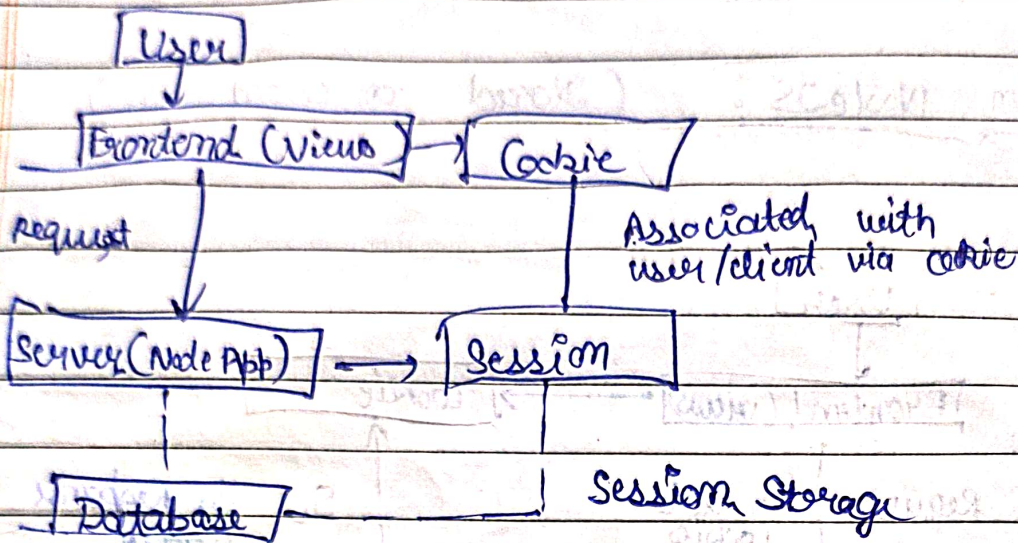 User
Frontend (Views)
Cookie
Request
Associated with
user/client via cookie
Server (Node App)
Session
Database
Session Storage